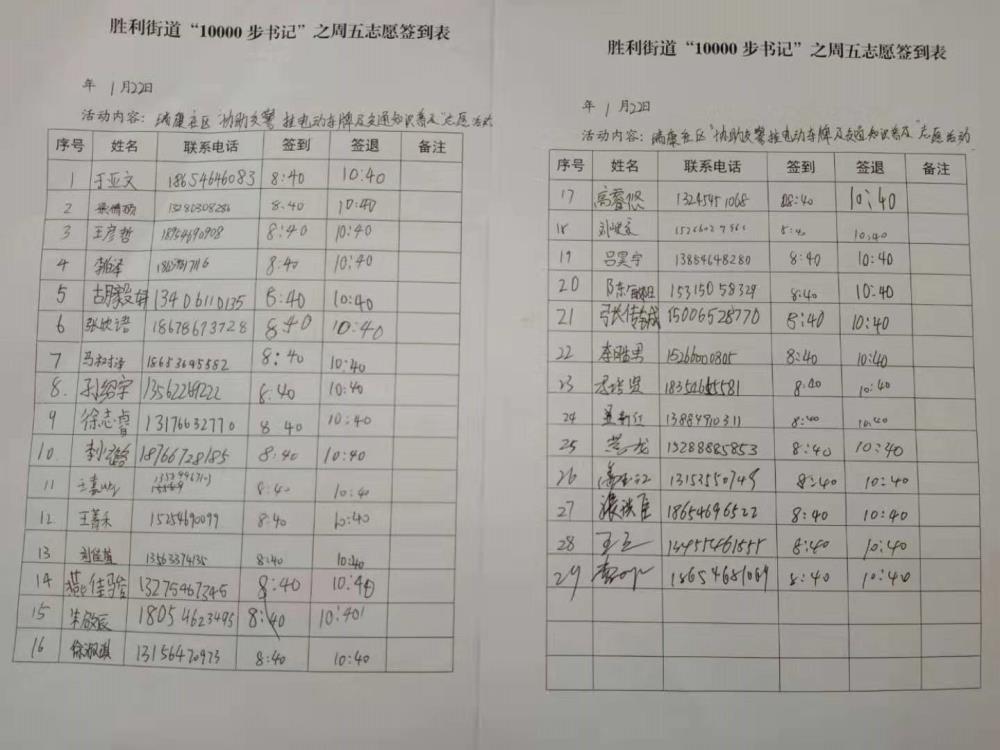 胜利街道“10000步书记”之周五志愿签到表
年 1月22日
活动内容：瑞康社区“协助交警挂电动车牌及交通知识普及”志愿活动
序号 姓名 联系电话 签到 签退 备注
1 于亚文 18654646083 8:40 10:40
2 13280308286 8:40 10:40
3 王彦哲 8:40 10:40
4 8:40 10:40
5 胡毅妍 13406110135 8:40 10:40
6 张欣语 18678673728 8:40 10:40
7 18653695582 8:40 10:40
8. 孙绍宇 13562269222 8:40 10:40
9 徐志睿 13176632770 8 40 10:40
10. 18766728185 8:40 10:40
11 8:40 10:40
12. 王菁禾 15254690099 8:40 10:40
13 13563374135 8:40 10:40
14 燕佳骏 13275467345 8:40 10:40
15 朱啟辰 18054623495 8:40 10:40
16 徐淑琪 13156470973 8:40 10:40
胜利街道“10000步书记”之周五志愿签到表
年 1月22日
活动内容：瑞康社区“协助交警挂电动车牌及交通知识普及”志愿活动
序号 姓名 联系电话 签到 签退 备注
17 高睿悠 13245451068 08:40 10:40
18 8:40 10:40
19 吕昊宇 13854648280 8:40 10:40
20 15315058329 8:40 10:40
21 张传诚 15006528770 8:40 10:40
22 李皓男 15266000805 8:40 10:40
23 18354655581 8:40 10:40
24 13884910311 8:40 10:40
25 19288885853 8:40 10:40
26 13153550749 8:40 10:40
27 18654696522 8:40 10:40
28 8:40 10:40
29 18654681069 8:40 10:40